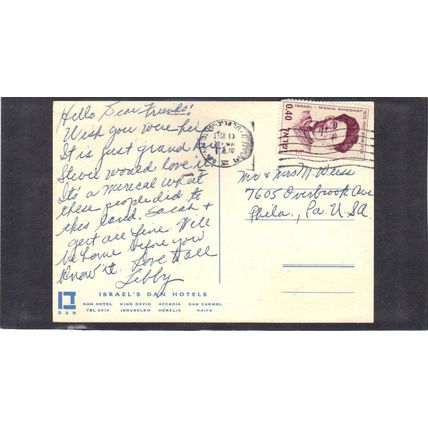 Hello Dear Friends!
Wish you were here
It is just grand
Steve would love it
It's a murical what
these people did to
this land. Sarah &
get all fine. Will
be home before you
know it. Love to all
Libby
ISRAEL · MANIA SHOCHAT
0.40
Mr & Mrs M. Weiss
7605 Overbrook Ave
Phila., Pa. U.S.A
DAN
ISRAEL'S DAN HOTELS
DAN HOTEL KING DAVID ACCADIA DAN CARMEL
TEL AVIV JERUSALEM HERZLIA HAIFA